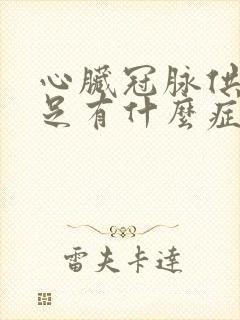 心臟冠脉供
足有什麼症
雷夫卡達